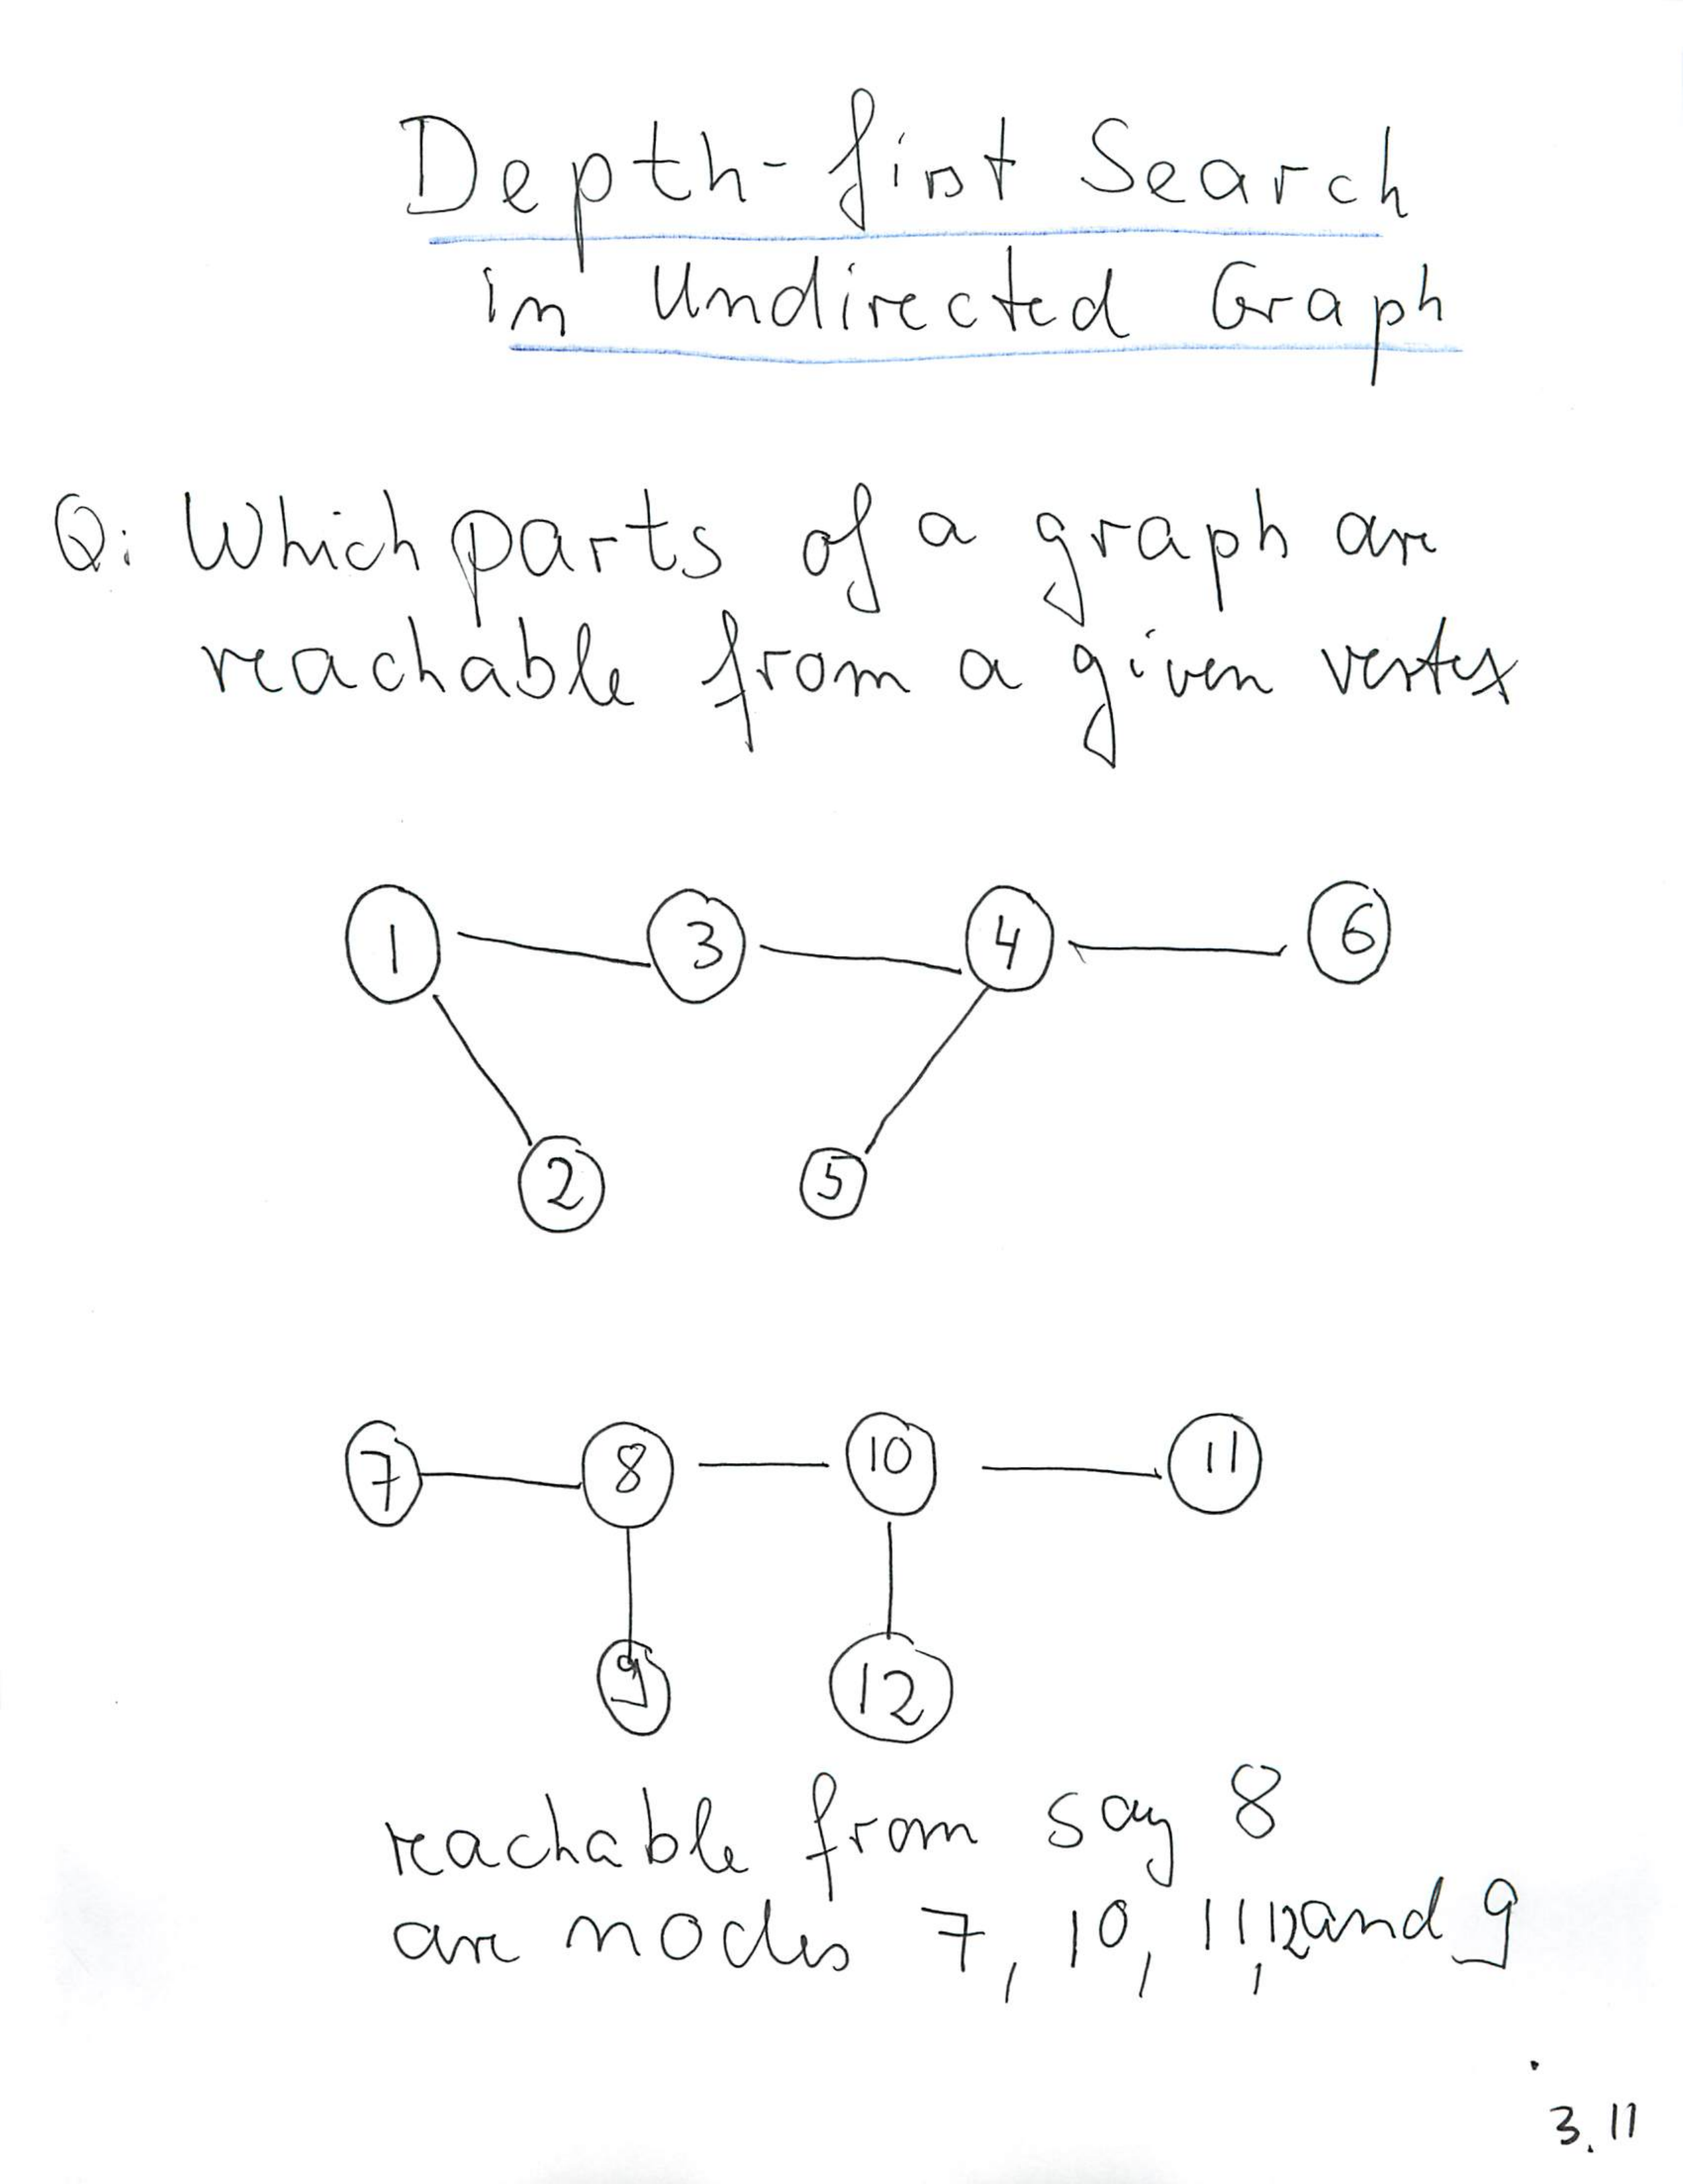 Depth-first Search
in Undirected Graph
Q: Which parts of a graph are
reachable from a given vertex
1 3 4 6
2 5
7 8 10 11
9 12
reachable from say 8
are nodes 7, 10, 11,12and 9
3.11